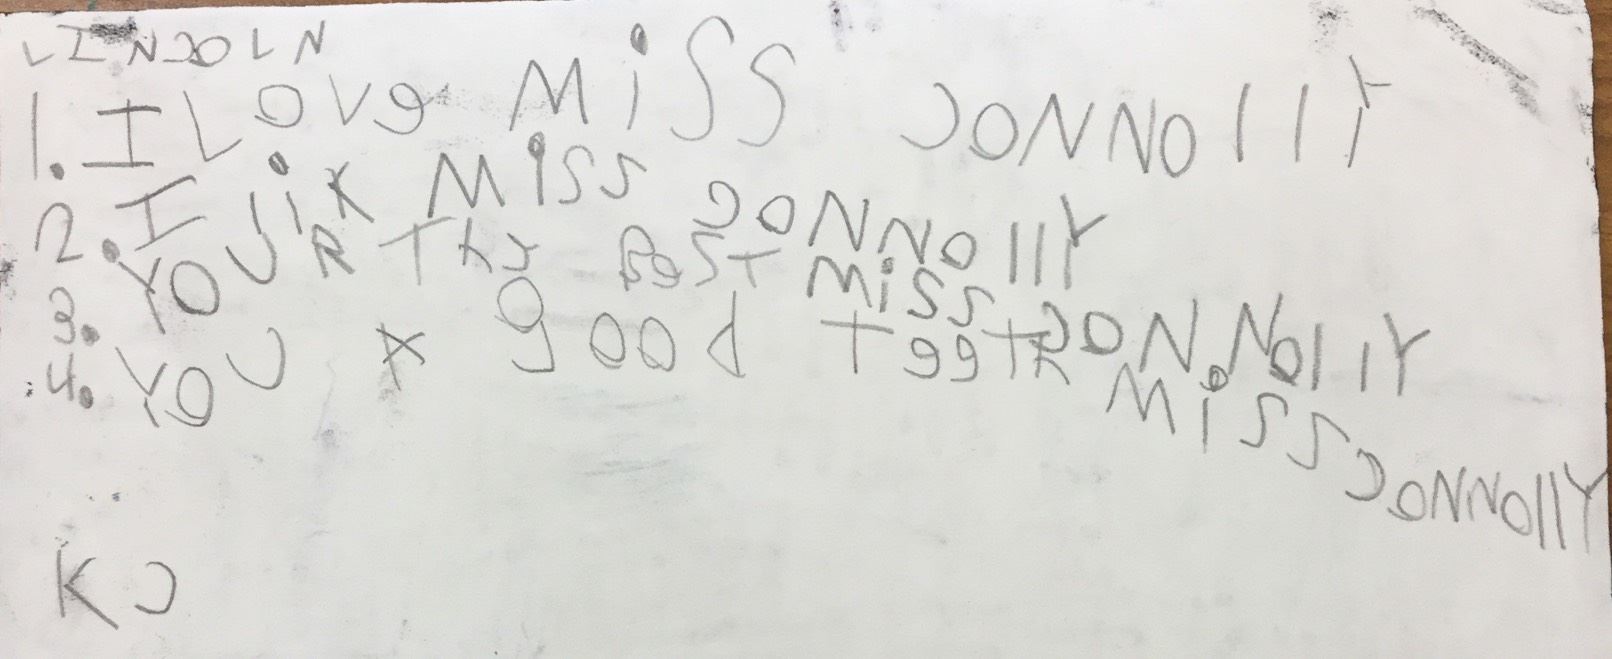 LINCOLN
1. I LOVe MiSS CONNOllY
2. I liK MiSS CONNOllY
3. YOU R The BeST MiSS CONNOllY
4. YOU x good TeeTh MiSS CONNOllY
KC